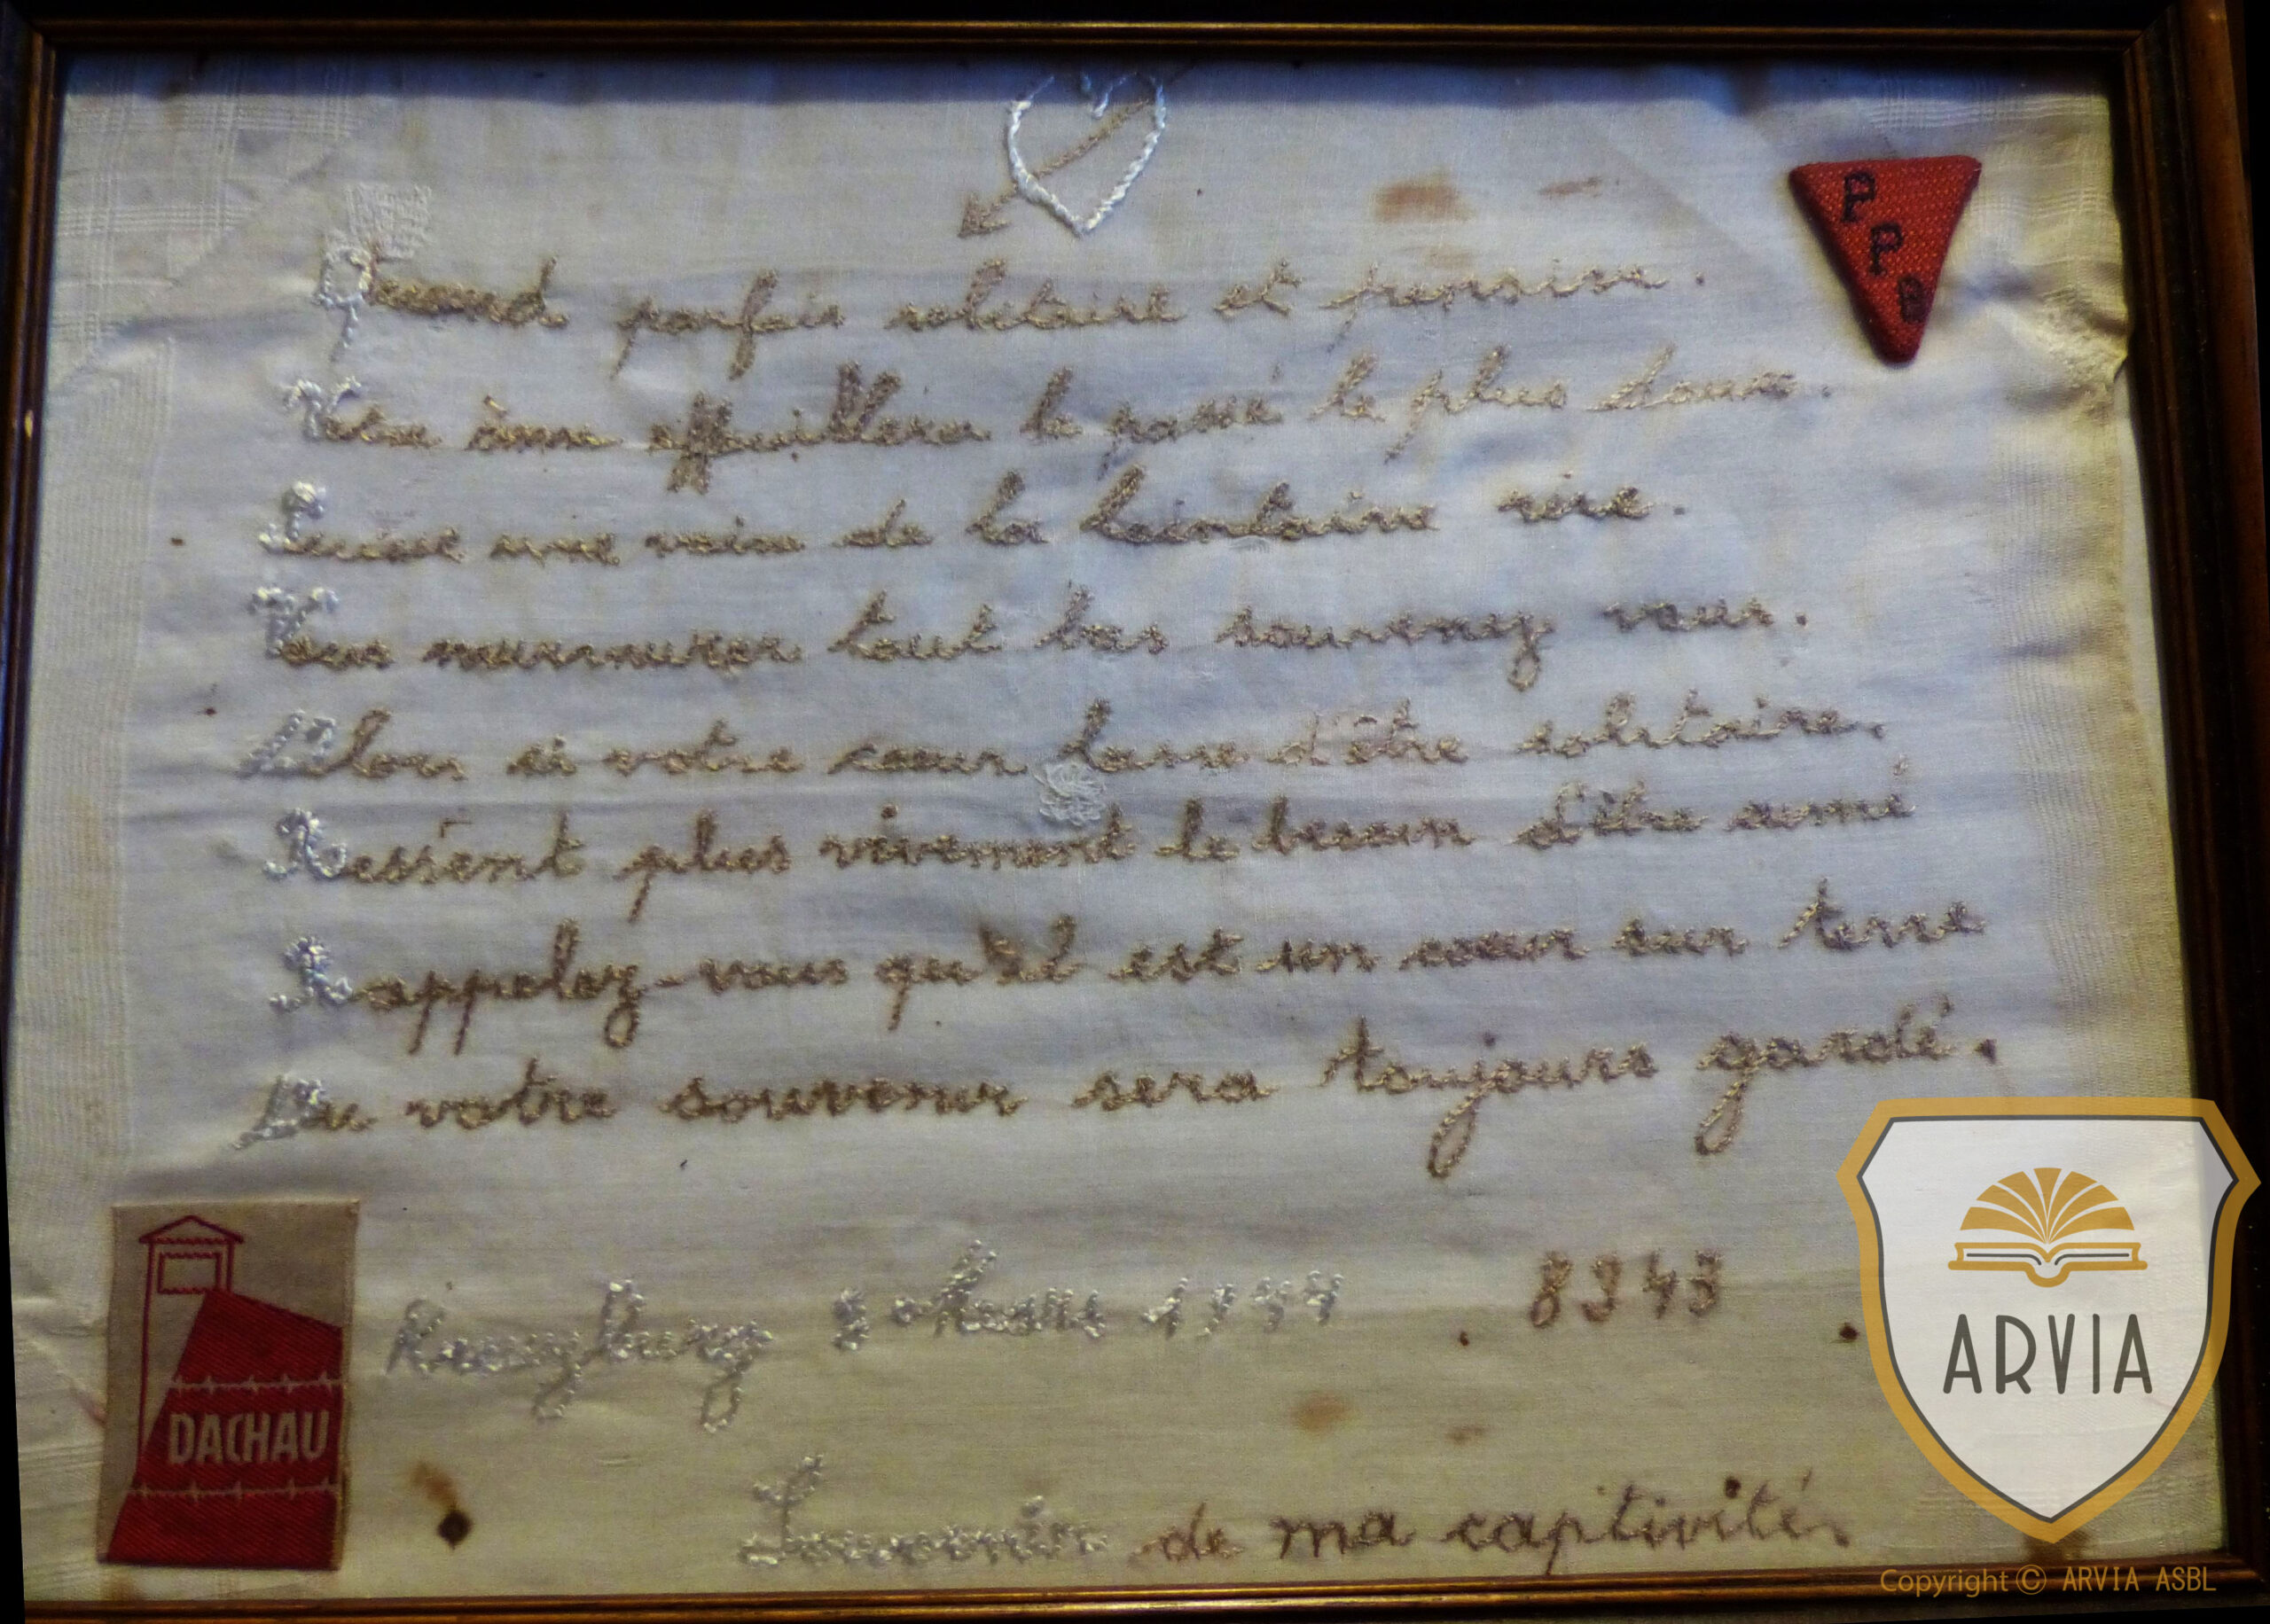 PPB
Quand parfois solitaire et pensive.
Votre âme effeuillera le passé le plus doux.
Puisse une voix de la lointaine rive.
Vous murmurer tout bas souvenez vous.
Alors si votre cœur lasse d'être solitaire,
Ressent plus vivement le besoin d'être aimé
Rappelez-vous qu'il est un cœur sur terre
Ou votre souvenir sera toujours gardé.
Mars 1944 8343
DACHAU
Souvenir de ma captivité.
ARVIA
Copyright © ARVIA ASBL